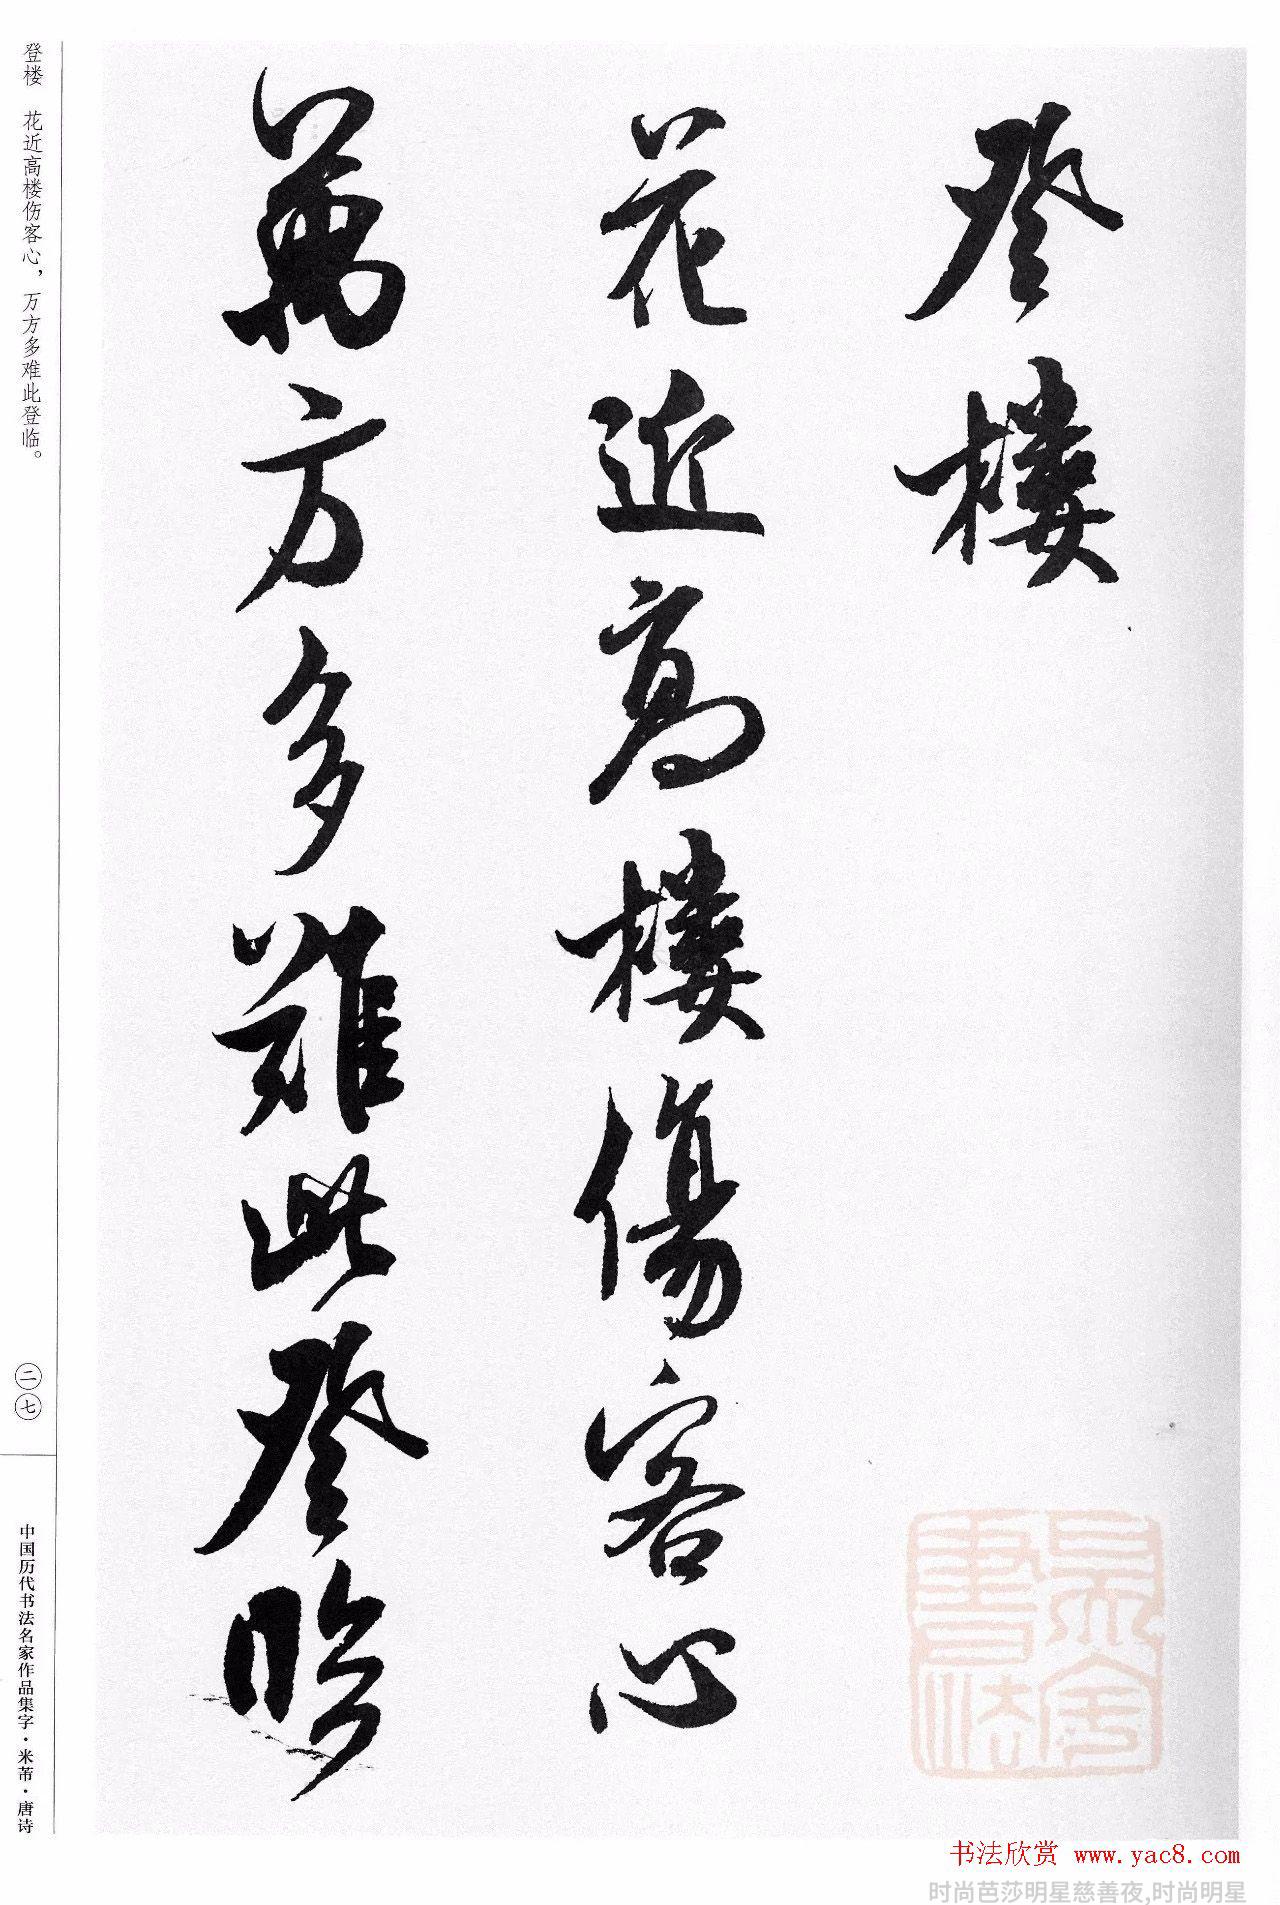 登樓
花近高樓傷客心
萬方多難此登臨
登楼 花近高楼伤客心，万方多难此登临。
二七
中国历代书法名家作品集字·米芾·唐诗
书法欣赏 www.yac8.com
时尚芭莎明星慈善夜,时尚明星